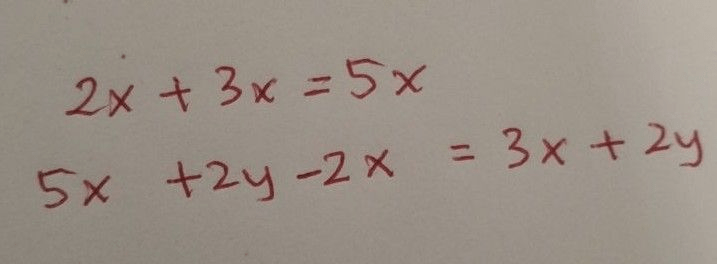 2x + 3x = 5x
5x +2y -2x = 3x + 2y